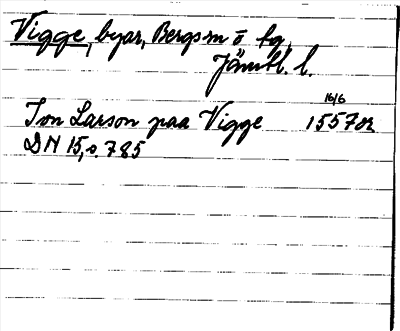 Vigge, byar, Bergs sn o kg,
Jämtl. l.
16/6
Ion Larson paa Vigge 1557 or
DN 15, s. 785